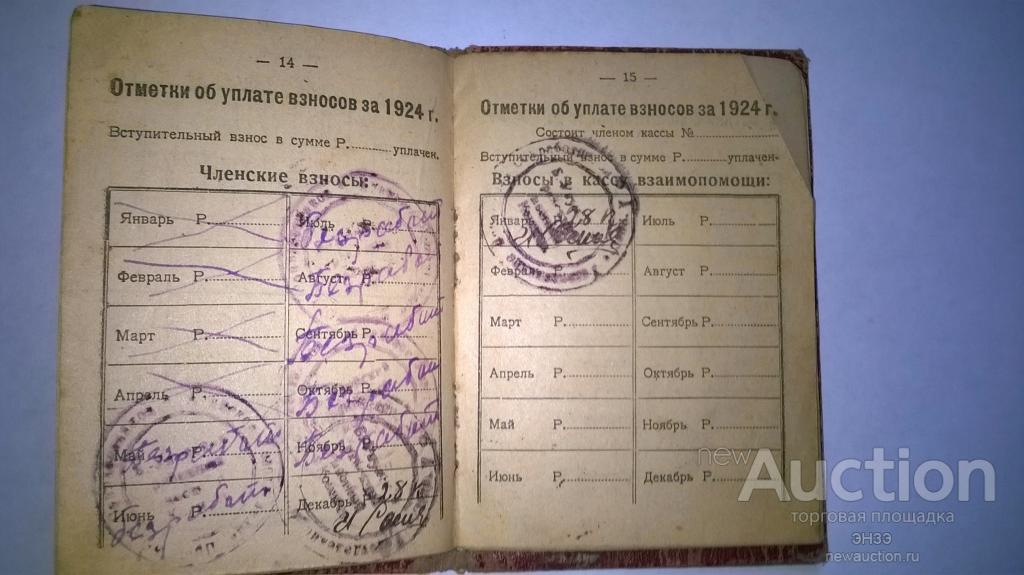 — 14 —
Отметки об уплате взносов за 1924 г.
Вступительный взнос в сумме Р.........уплачен.
Членские взносы:
Январь Р. Июль Р. Безработн
Февраль Р. Август Р. Безработ
Март Р. Сентябрь Р. Безработ
Апрель Р. Октябрь Р. Безработ
Май Р. Безработн Ноябрь Р. Безработ
Июнь Р. безработн Декабрь Р. 28 к
— 15 —
Отметки об уплате взносов за 1924 г.
Состоит членом кассы №
Вступительный взнос в сумме Р.........уплачен.
Взносы в кассу взаимопомощи:
Январь Р. 28 к Июль Р.
Февраль Р. Август Р.
Март Р. Сентябрь Р.
Апрель Р. Октябрь Р.
Май Р. Ноябрь Р.
Июнь Р. Декабрь Р.
newAuction
торговая площадка
ЭНЗЭ
newauction.ru